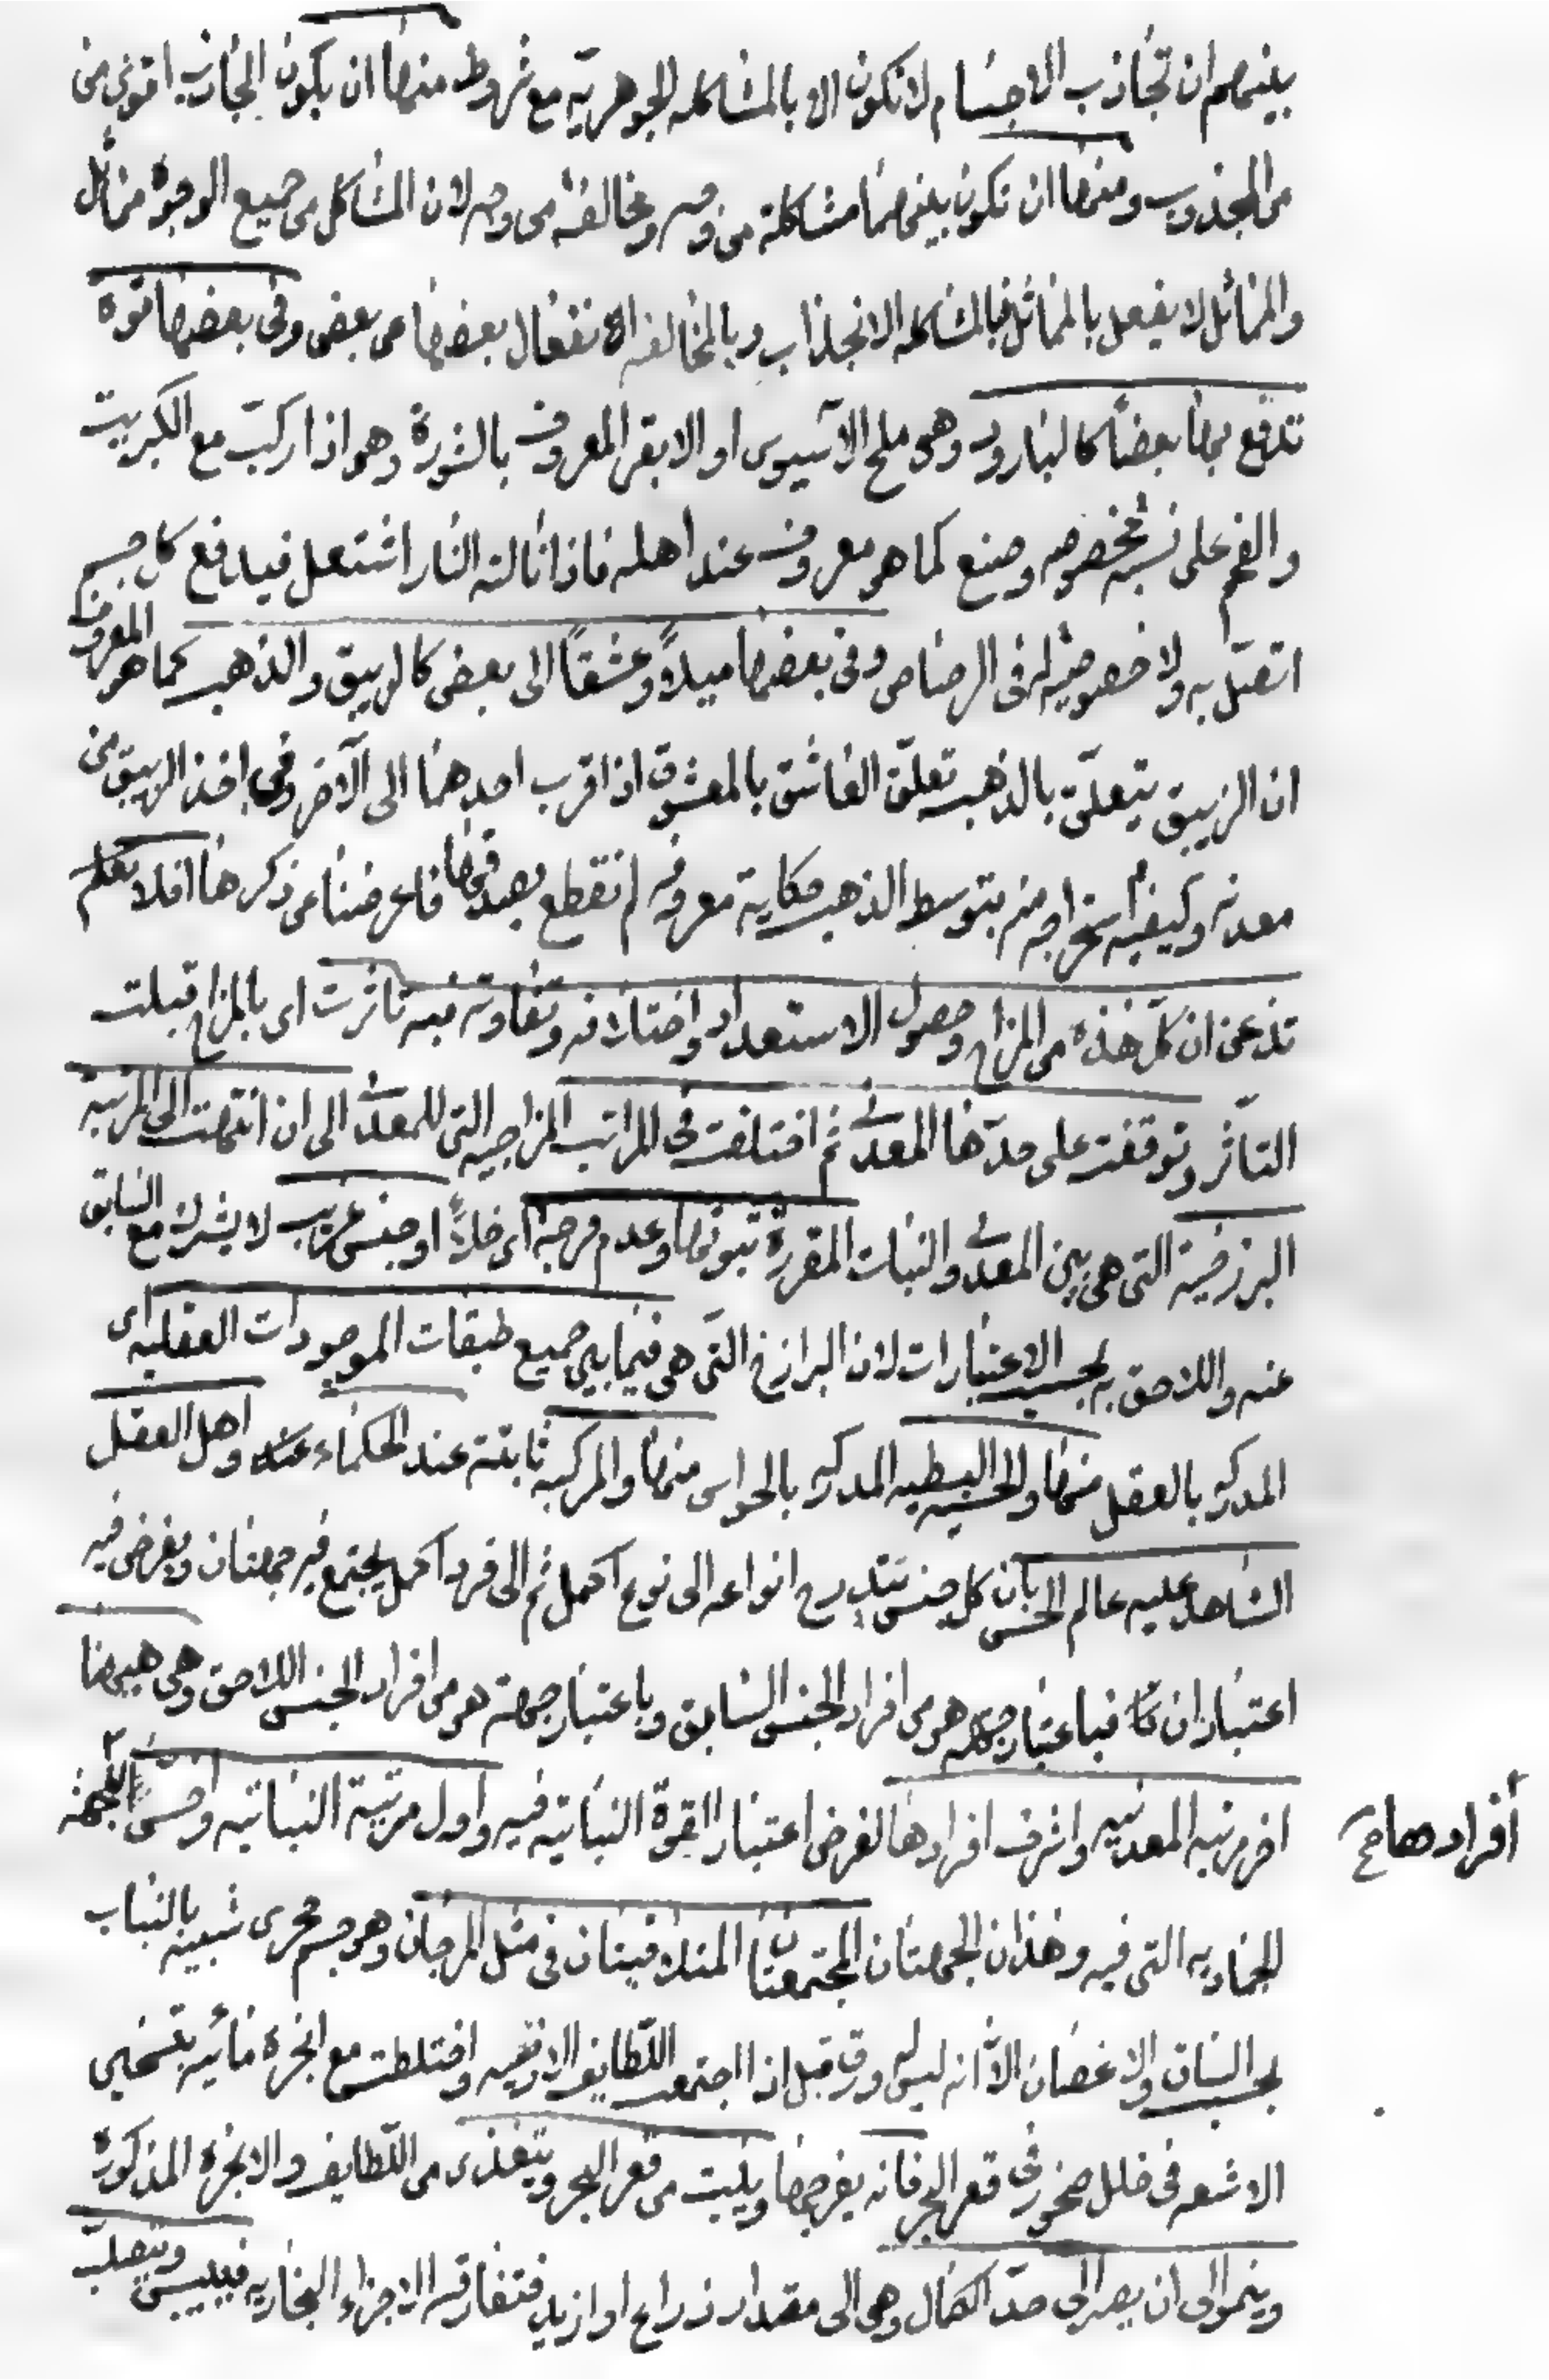 بينهم ان تجاذب الاجسام لا تكون الا بالمشاكله الجوهريه مع شروط منها ان يكون الجاذب اقوى من
من المجذوب ومنها ان تكون بينهما مشاكلة من وجه ومخالفة من وجه لان المشاكل من جميع الوجوه مماثل
والمماثل لا يفعل بالمماثل فبالمشاكله الانجذاب وبالمخالفه الانفعال بعضها من بعض وفى بعضها قوة
تدفع بها بعضا كالبارود وهى ملح الاسيوى او الابقر المعروف بالشورة وهو اذا ركبت مع الكبريت
والفحم على نسبة مخصوصه وصنع كما هو معروف عند اهله فاذا نالته النار اشتعل فيدافع كل جسم
اتصل به ولا خصوصية له فى الرصاص وفى بعضها ميلا وعشقا الى بعض كالزيبق والذهب كما هو المعروف
ان الزيبق يتعلق بالذهب تعلق العاشق بالمعشوق اذا قرب احدهما الى الآخر وفى اخذ الزيبق من
معدنه وكيفية استخراجه منه بتوسط الذهب حكاية معروفه لم نقطع بصدقها فاعرضنا عن ذكرها افلا تعلم
تذعن ان كل هذه من المزاج وحصول الاستعداد واختلافه وتفاوته فيه تاثرت اى بالمزاج قبلت
التأثر وتوقفت على حدها المعدنى ثم اختلفت فى المراتب المزاجيه التى للمعدن الى ان انتهت الى المرتبة
البرزخية التى هى بين المعدنى والنبات المقررة ثبوتها وعدم فرجة اى خلأ او جنس غريب لا يشترك مع السابق
عنه واللاحق به بحسب الاعتبارات لان البرازخ التى هى فيما بين جميع طبقات الموجودات العقليه اى
المدركه بالعقل منها والحسيه البسيطيه المدركه بالحواس منها والمركبه ثابتة عند الحكماء واهل العقل
الشاهد عليه عالم الحس بان كل جنس تتدرج انواعه الى نوع اكمل ثم الى فرد اكمل يجتمع فيه جهتان ويفرض فيه
اعتباران فباعتبار جهة هو من افراد الجنس السابق وباعتبار جهة هو من افراد الجنس اللاحق وهى هيهنا
اخر مرتبه المعدنيه واشرف افرادها لفرض اعتبار القوة النباتيه فيه واول مرتبة النباتيه واخس للجهة
أفرادها صح
الجماديه التى فيه وهذان الجهتان المجتمعتان المتلاقيتان فى مثل المرجان وهو جسم حجرى شبيه بالنبات
بحسب الساق والاغصان الا انه ليس له ورق قيل اذا اجتمعت اللطايف الارضيه واختلطت مع ابخرة مائيه بتسخين
الاشعه فى خلل صخور فى قعر البحر فانه يفرجها وينبت من قعر البحر ويتغذى من اللطايف والابخرة المذكورة
وينمو الى ان يصير الى حد الكمال وهى الى مقدار ذراع او ازيد فتفارقه الاجزاء البخاريه فييبس ويتصلب